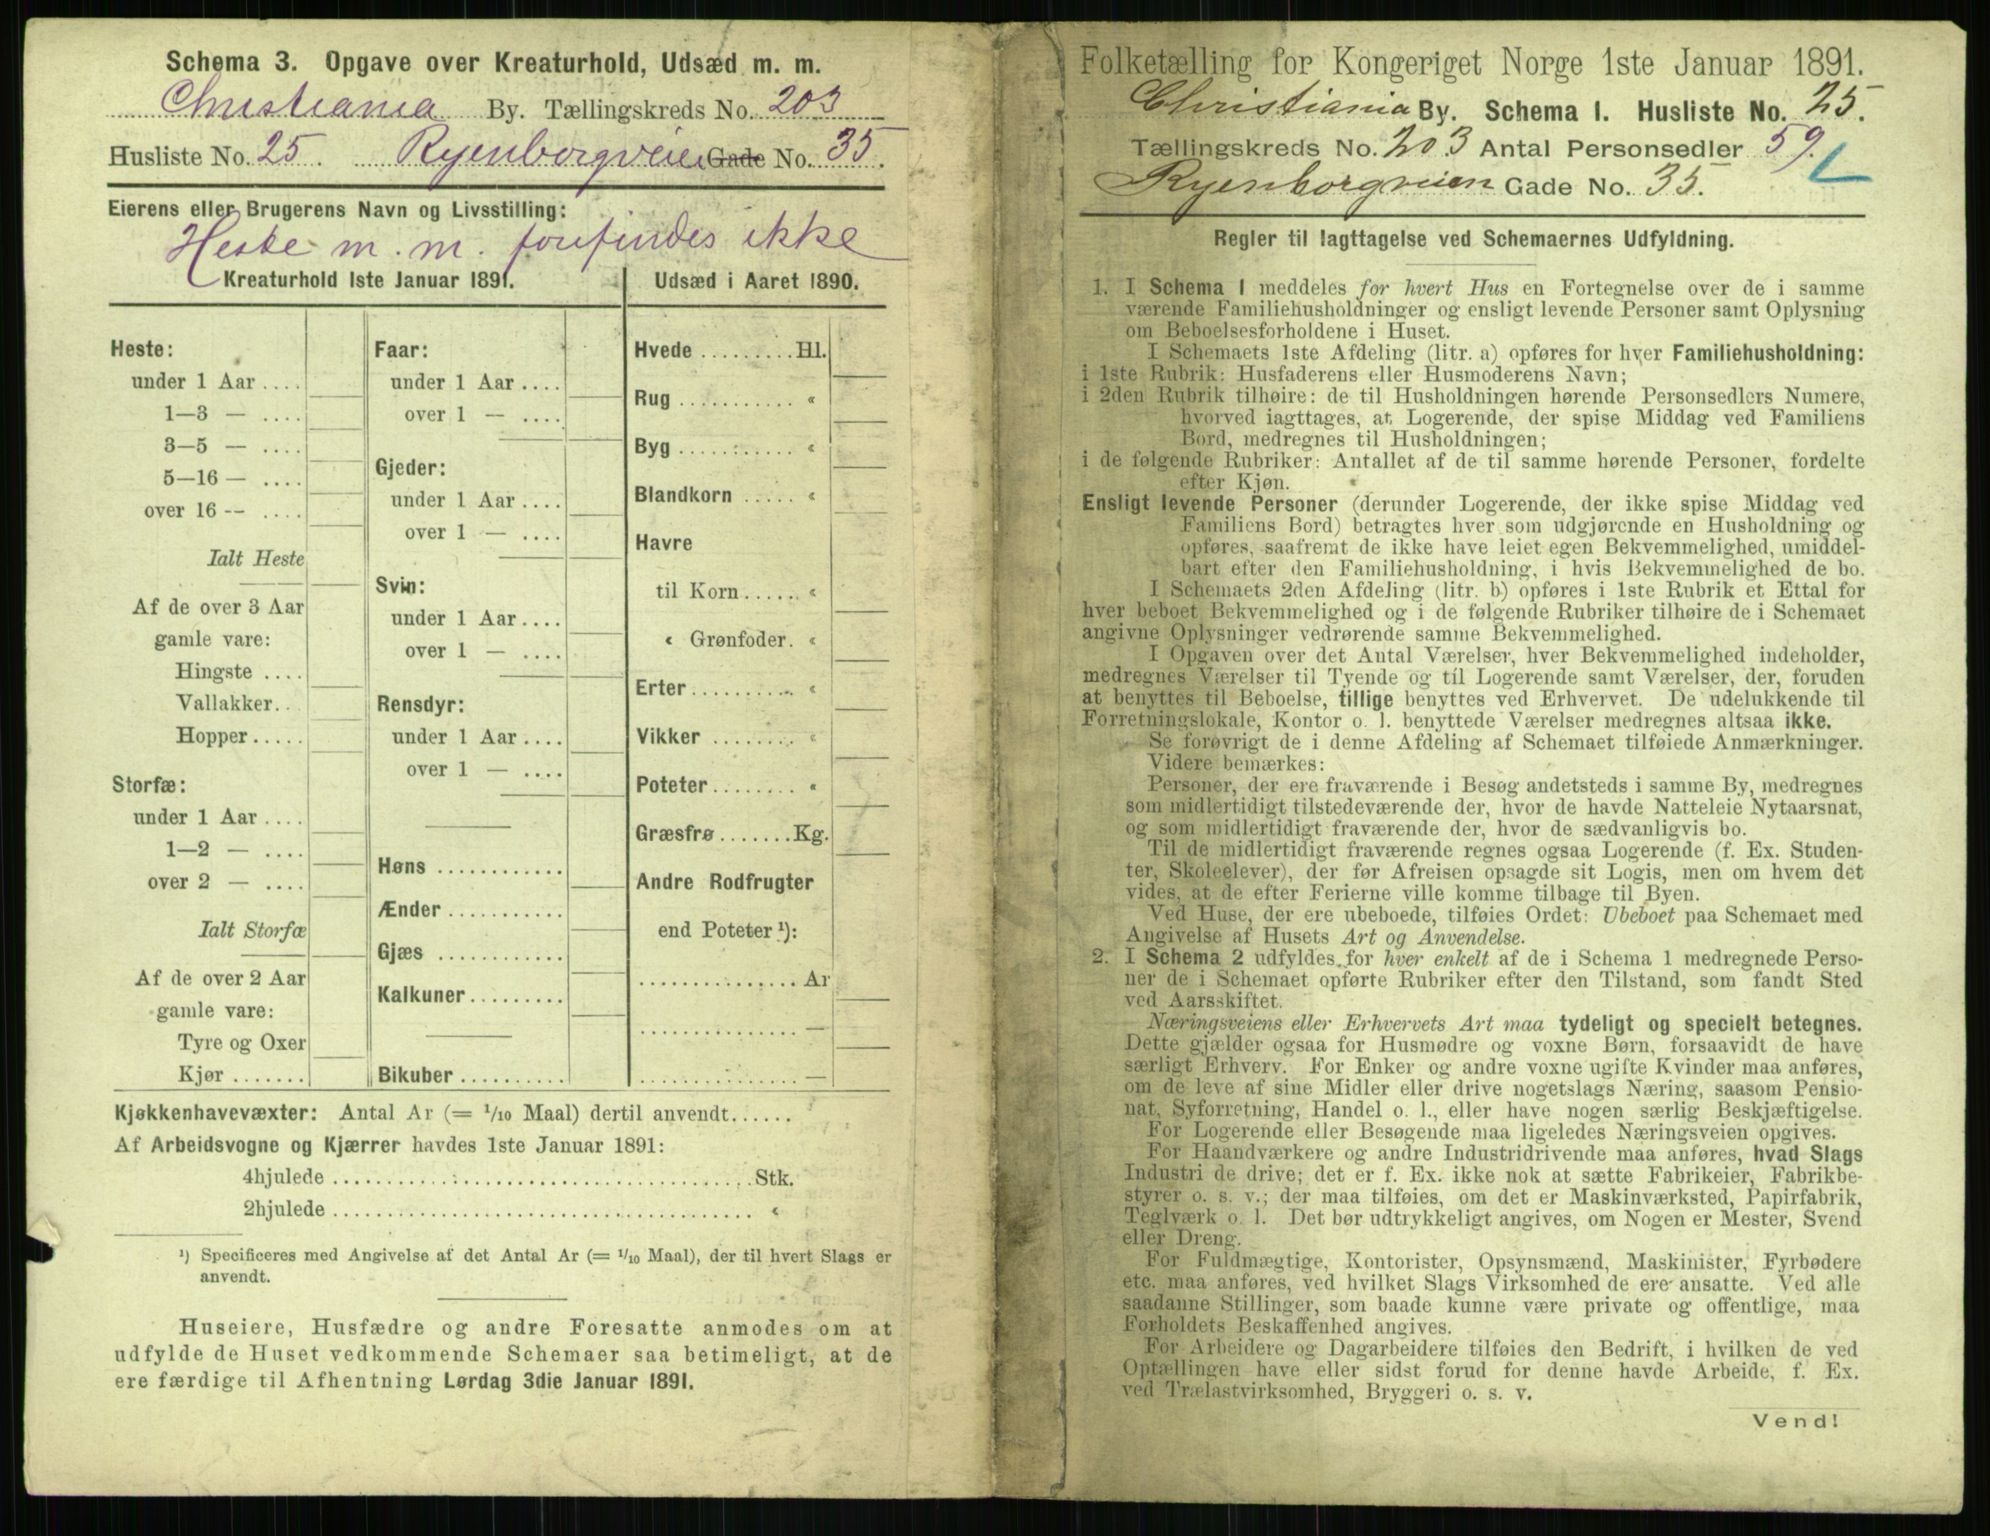 Schema 3. Opgave over Kreaturhold, Udsæd m. m.
Christiania By. Tællingskreds No. 203
Husliste No. 25. Ryenborgveien Gade No. 35.
Eierens eller Brugerens Navn og Livsstilling:
Heste m. m. forefindes ikke
Kreaturhold 1ste Januar 1891.
Heste:
under 1 Aar ....
1—3 — ....
3—5 — ....
5—16 — ....
over 16 -- ....
Ialt Heste
Af de over 3 Aar
gamle vare:
Hingste ....
Vallakker..
Hopper.....
Storfæ:
under 1 Aar ....
1—2 — ....
over 2 — ....
Ialt Storfæ
Af de over 2 Aar
gamle vare:
Tyre og Oxer
Kjør .......
Faar:
under 1 Aar ....
over 1 — ....
Gjeder:
under 1 Aar ....
over 1 — ....
Svin:
under 1 Aar ....
over 1 — ....
Rensdyr:
under 1 Aar ....
over 1 — ....
Høns ............
Ænder ...........
Gjæs ............
Kalkuner.........
Bikuber ..........
Udsæd i Aaret 1890.
Hvede .........Hl.
Rug ........... «
Byg ........... «
Blandkorn ..... «
Havre
til Korn...... «
« Grønfoder. «
Erter.......... «
Vikker ........ «
Poteter........ «
Græsfrø.......Kg.
Andre Rodfrugter
end Poteter ¹):
............... Ar
............... —
............... —
Kjøkkenhavevæxter: Antal Ar (= 1/10 Maal) dertil anvendt......
Af Arbeidsvogne og Kjærrer havdes 1ste Januar 1891:
4hjulede ........................................ Stk.
2hjulede ........................................ «
¹) Specificeres med Angivelse af det Antal Ar (= 1/10 Maal), der til hvert Slags er
anvendt.
Huseiere, Husfædre og andre Foresatte anmodes om at
udfylde de Huset vedkommende Schemaer saa betimeligt, at de
ere færdige til Afhentning Lørdag 3die Januar 1891.
Folketælling for Kongeriget Norge 1ste Januar 1891.
Christiania By. Schema I. Husliste No. 25.
Tællingskreds No. 203 Antal Personsedler 59.
Ryenborgveien Gade No. 35.
Regler til Iagttagelse ved Schemaernes Udfyldning.
1. I Schema I meddeles for hvert Hus en Fortegnelse over de i samme
værende Familiehusholdninger og ensligt levende Personer samt Oplysning
om Beboelsesforholdene i Huset.
I Schemaets 1ste Afdeling (litr. a) opføres for hver Familiehusholdning:
i 1ste Rubrik: Husfaderens eller Husmoderens Navn;
i 2den Rubrik tilhøire: de til Husholdningen hørende Personsedlers Numere,
hvorved iagttages, at Logerende, der spise Middag ved Familiens
Bord, medregnes til Husholdningen;
i de følgende Rubriker: Antallet af de til samme hørende Personer, fordelte
efter Kjøn.
Ensligt levende Personer (derunder Logerende, der ikke spise Middag ved
Familiens Bord) betragtes hver som udgjørende en Husholdning og
opføres, saafremt de ikke have leiet egen Bekvemmelighed, umiddel-
bart efter den Familiehusholdning, i hvis Bekvemmelighed de bo.
I Schemaets 2den Afdeling (litr. b) opføres i 1ste Rubrik et Ettal for
hver beboet Bekvemmelighed og i de følgende Rubriker tilhøire de i Schemaet
angivne Oplysninger vedrørende samme Bekvemmelighed.
I Opgaven over det Antal Værelser, hver Bekvemmelighed indeholder,
medregnes Værelser til Tyende og til Logerende samt Værelser, der, foruden
at benyttes til Beboelse, tillige benyttes ved Erhvervet. De udelukkende til
Forretningslokale, Kontor o. l. benyttede Værelser medregnes altsaa ikke.
Se forøvrigt de i denne Afdeling af Schemaet tilføiede Anmærkninger.
Videre bemærkes:
Personer, der ere fraværende i Besøg andetsteds i samme By, medregnes
som midlertidigt tilstedeværende der, hvor de havde Natteleie Nytaarsnat,
og som midlertidigt fraværende der, hvor de sædvanligvis bo.
Til de midlertidigt fraværende regnes ogsaa Logerende (f. Ex. Studen-
ter, Skoleelever), der før Afreisen opsagde sit Logis, men om hvem det
vides, at de efter Ferierne ville komme tilbage til Byen.
Ved Huse, der ere ubeboede, tilføies Ordet: Ubeboet paa Schemaet med
Angivelse af Husets Art og Anvendelse.
2. I Schema 2 udfyldes for hver enkelt af de i Schema 1 medregnede Perso-
ner de i Schemaet opførte Rubriker efter den Tilstand, som fandt Sted
ved Aarsskiftet.
Næringsveiens eller Erhvervets Art maa tydeligt og specielt betegnes.
Dette gjælder ogsaa for Husmødre og voxne Børn, forsaavidt de have
særligt Erhverv. For Enker og andre voxne ugifte Kvinder maa anføres,
om de leve af sine Midler eller drive nogetslags Næring, saasom Pensio-
nat, Syforretning, Handel o. l., eller have nogen særlig Beskjæftigelse.
For Logerende eller Besøgende maa ligeledes Næringsveien opgives.
For Haandværkere og andre Industridrivende maa anføres, hvad Slags
Industri de drive; det er f. Ex. ikke nok at sætte Fabrikeier, Fabrikbe-
styrer o. s. v.; der maa tilføies, om det er Maskinværksted, Papirfabrik,
Teglværk o. l. Det bør udtrykkeligt angives, om Nogen er Mester, Svend
eller Dreng.
For Fuldmægtige, Kontorister, Opsynsmænd, Maskinister, Fyrbødere
etc. maa anføres, ved hvilket Slags Virksomhed de ere ansatte. Ved alle
saadanne Stillinger, som baade kunne være private og offentlige, maa
Forholdets Beskaffenhed angives.
For Arbeidere og Dagarbeidere tilføies den Bedrift, i hvilken de ved
Optællingen have eller sidst forud for denne havde Arbeide, f. Ex.
ved Trælastvirksomhed, Bryggeri o. s. v.
Vend!